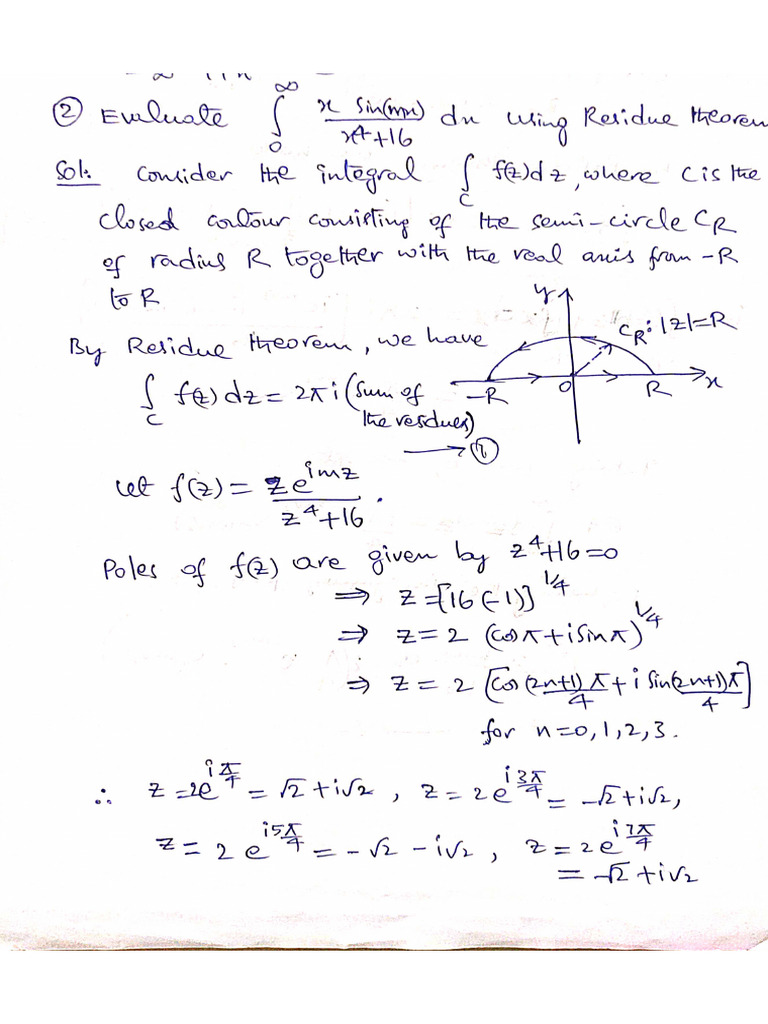 ② Evaluate ∫₀^∞ x sin(mx) / x⁴+16 dx using Residue theorem
Sol: Consider the integral ∫_C f(z)dz, where C is the
closed contour consisting of the semi-circle C_R
of radius R together with the real axis from -R
to R
By Residue theorem, we have
∫_C f(z) dz = 2πi (sum of
the resdues)
→ ①
y
C_R: |z|=R
-R O R x
Let f(z) = z e^{imz} / z⁴+16 .
Poles of f(z) are given by z⁴+16=0
⇒ z=[16(-1)]^{1/4}
⇒ z = 2 (cosπ+isinπ)^{1/4}
⇒ z = 2 [cos (2n+1)π/4 + i sin(2n+1)π/4]
for n=0,1,2,3.
∴ z=2e^{iπ/4} = √2 + i√2 , z = 2e^{i3π/4} = -√2+i√2,
z = 2 e^{i5π/4} = -√2 - i√2 , z = 2e^{i7π/4}
= -√2 + i√2